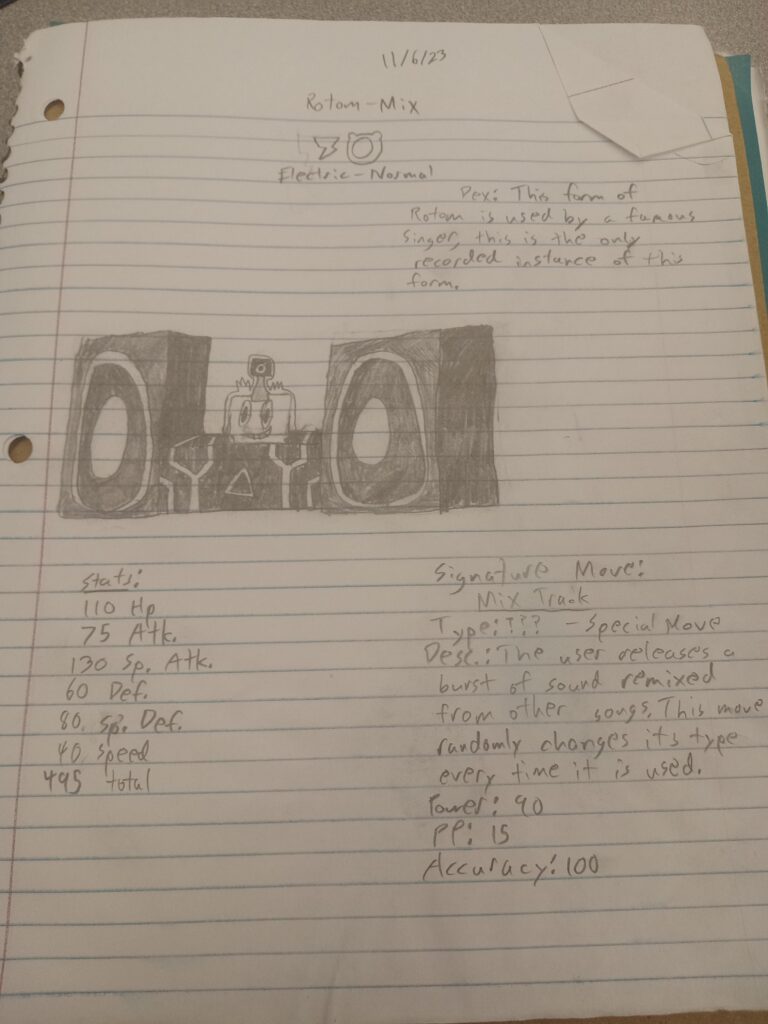 11/6/23
Rotom-Mix
Electric-Normal
Dex: This form of
Rotom is used by a famous
singer, this is the only
recorded instance of this
form.
Stats:
110 Hp
75 Atk.
130 Sp. Atk.
60 Def.
80 Sp. Def.
40 speed
495 total
Signature Move:
Mix Track
Type:??? - Special Move
Desc.: The user releases a
burst of sound remixed
from other songs. This move
randomly changes its type
every time it is used.
Power: 90
PP: 15
Accuracy: 100